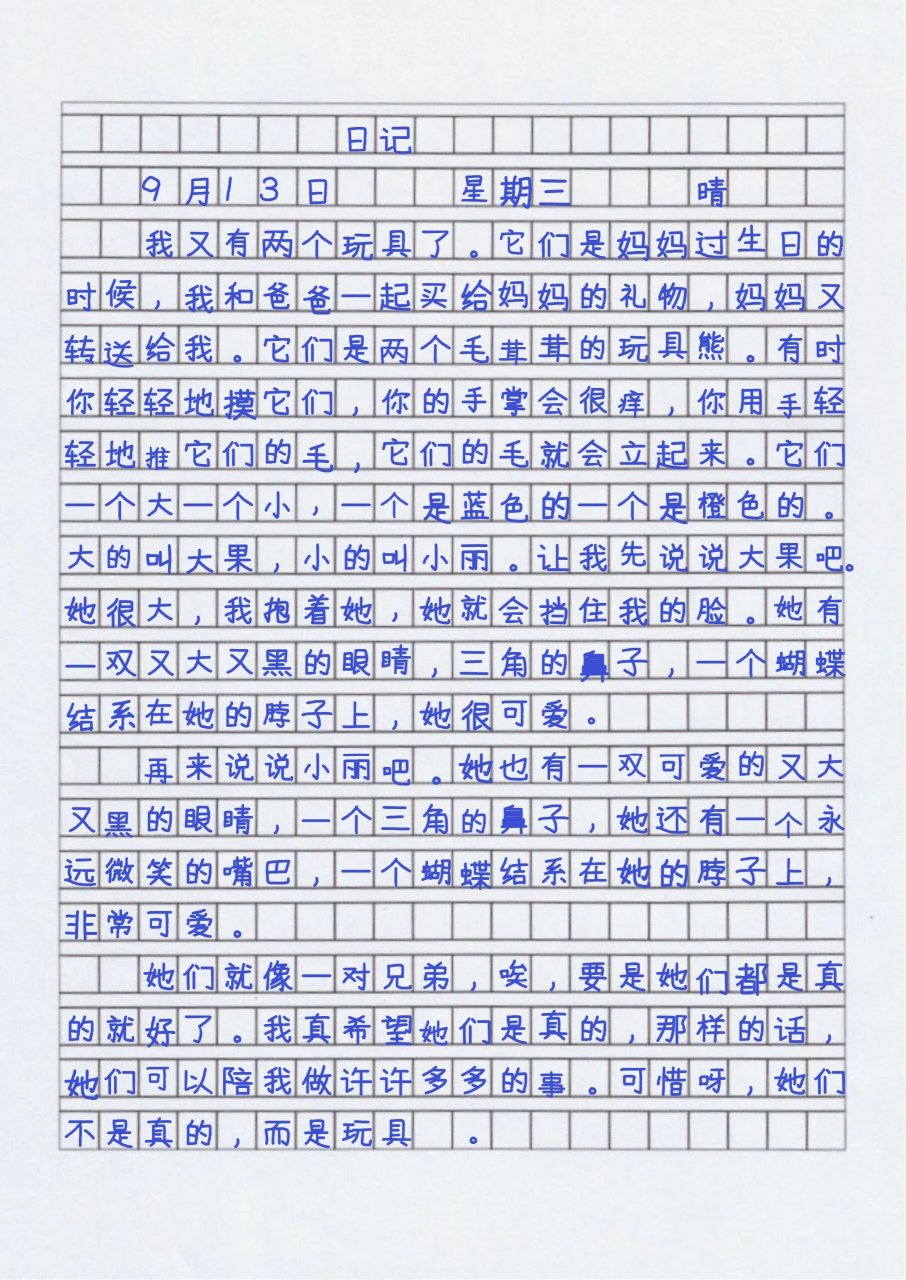 日记
9月13日 星期三 晴
我又有两个玩具了。它们是妈妈过生日的
时候，我和爸爸一起买给妈妈的礼物，妈妈又
转送给我。它们是两个毛茸茸的玩具熊。有时
你轻轻地摸它们，你的手掌会很痒，你用手轻
轻地推它们的毛，它们的毛就会立起来。它们
一个大一个小，一个是蓝色的一个是橙色的。
大的叫大果，小的叫小丽。让我先说说大果吧。
她很大，我抱着她，她就会挡住我的脸。她有
一双又大又黑的眼睛，三角的鼻子，一个蝴蝶
结系在她的脖子上，她很可爱。
再来说说小丽吧。她也有一双可爱的又大
又黑的眼睛，一个三角的鼻子，她还有一个永
远微笑的嘴巴，一个蝴蝶结系在她的脖子上，
非常可爱。
她们就像一对兄弟，唉，要是她们都是真
的就好了。我真希望她们是真的，那样的话，
她们可以陪我做许许多多的事。可惜呀，她们
不是真的，而是玩具 。